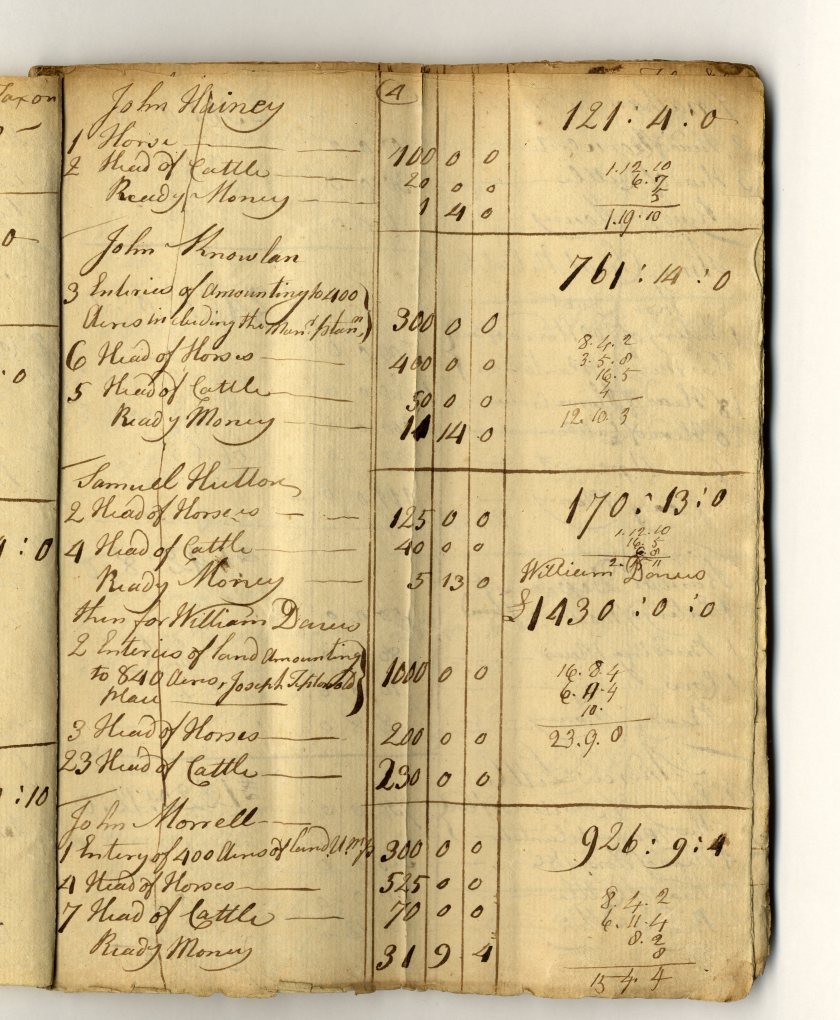 Taxon
4
John Hainey
121 : 4 : 0
1 Horse 100 0 0
2 Head of Cattle 20 0 0
Ready Money 1 4 0
1.12.10
6.7
5
1.19.10
John Knowlan
761 : 14 : 0
3 Enteries of Amounting to 400
Acres including the 300 0 0
6 Head of Horses 400 0 0
5 Head of Cattle 50 0 0
Ready Money 11 14 0
8.4.2
3.5.8
16.5
4
12.10.3
Samuel Hutton
170 : 13 : 0
2 Head of Horses 125 0 0
4 Head of Cattle 40 0 0
Ready Money 5 13 0
1.12.10
16.5
William
£1430 : 0 : 0
then for William
2 Enteries of land amounting
to 840 Acres, Joseph 1000 0 0
place
3 Head of Horses 200 0 0
23 Head of Cattle 230 0 0
16.8.4
6.11.4
10.
23.9.0
John Morrell
926 : 9 : 4
1 Entery of 400 Acres of land 300 0 0
4 Head of Horses 525 0 0
7 Head of Cattle 70 0 0
Ready Money 31 9 4
8.4.2
6.11.4
8.2
8
15.4.4
0
0
: 0
: 0
: 10